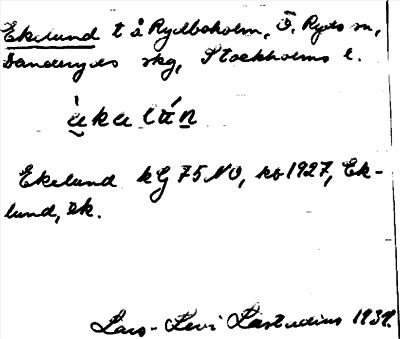 Ekelund t å Rydboholm, Ö. Ryds sn,
Danderyds skg, Stockholms l.
Ekelund kG 75 NO, ko 1927, Ek-
lund, Ek.
Lars-Levi Læstadius 1939.